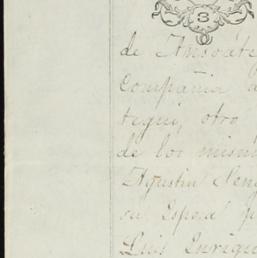 3
de Ansoáte
Compañia d
tegui, otro
de los mism
Agustin Seng
su Esposa p
Luis Enriqu